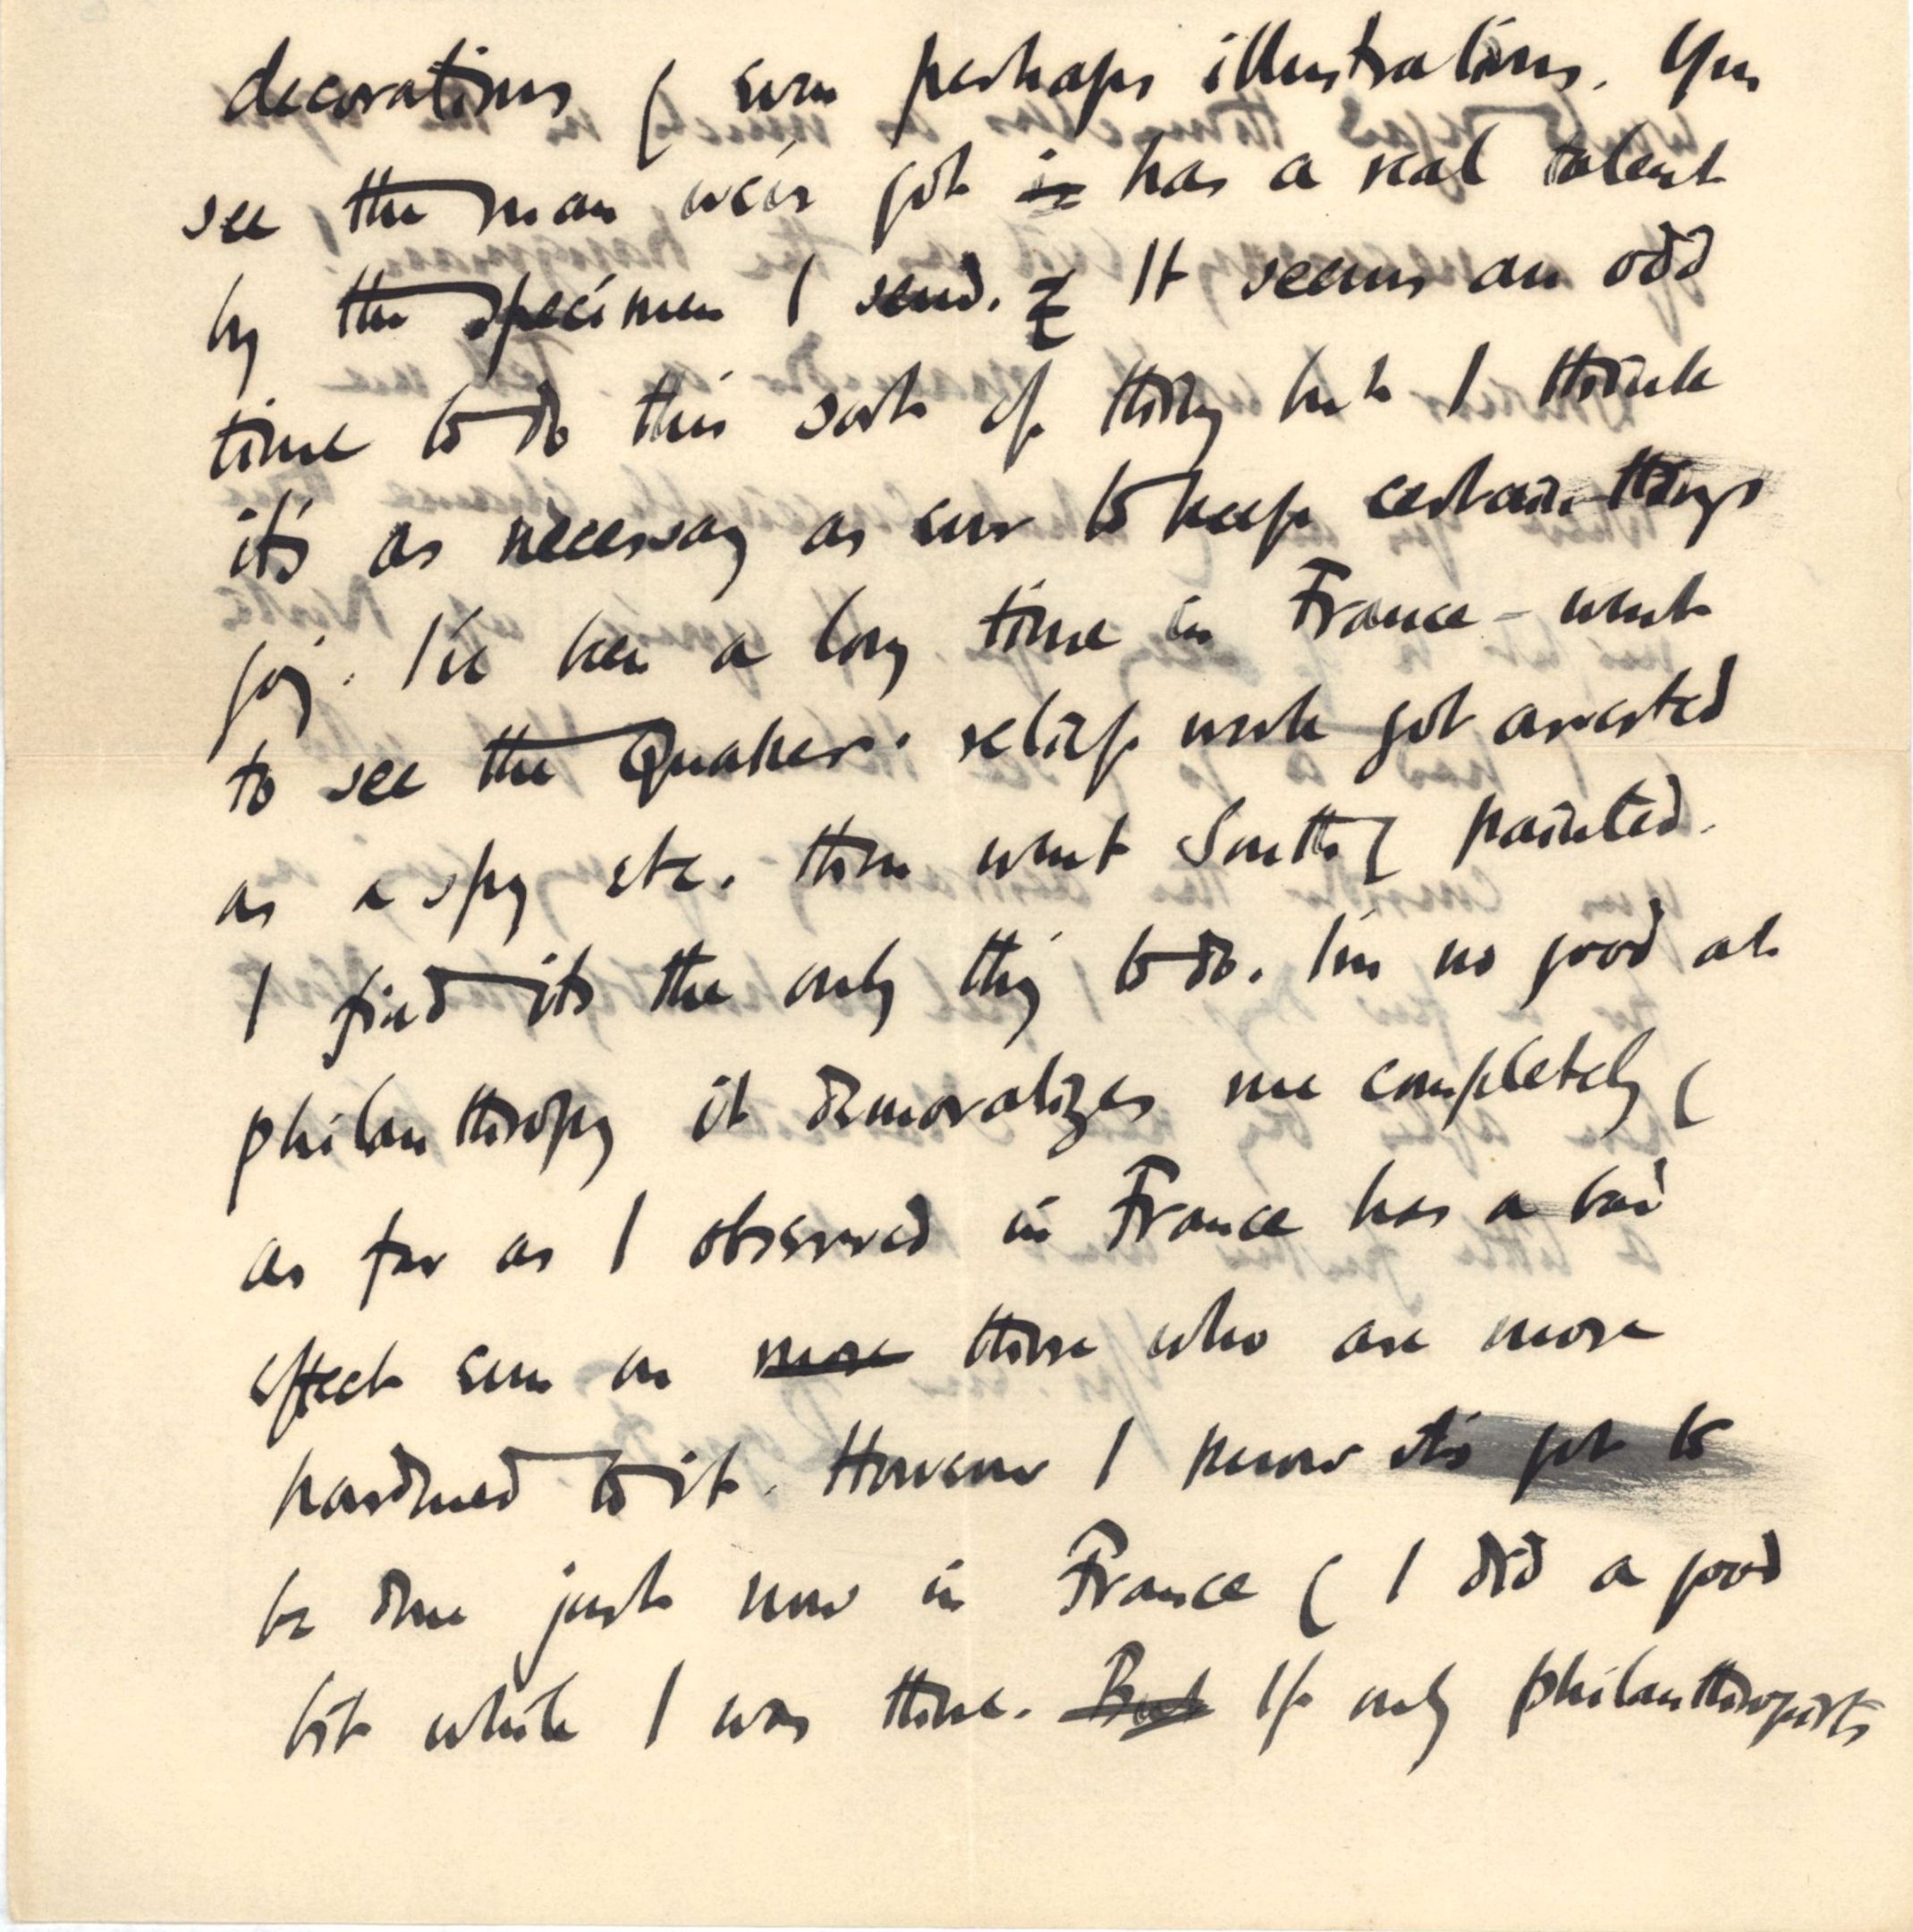 decorations & even perhaps illustrations. You
see the man we've got is has a real talent
by the specimen I send. & It seems an odd
time to do this sort of thing but I think
it's as necessary as ever to keep certain things
going. I've been a long time in France – went
to see the Quakers' relief work got arrested
as a spy etc. then went South & painted.
I find its the only thing to do. I'm no good at
philanthropy it demoralizes me completely &
as far as I observed in France has a bad
effect even on more those who are more
hardened to it. However I know it's got to
be done just now in France & I did a good
bit while I was there. But If only philanthropists